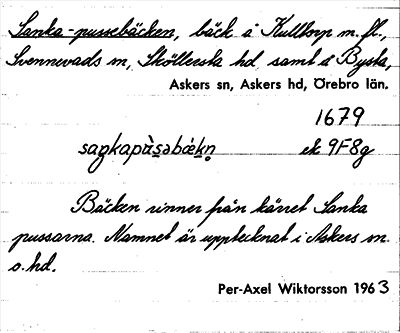 Sanka-pussebäcken, bäck å Kulltorp m. fl.,
Svennevads sn, Sköllersta hd, samt å Bysta,
Askers sn, Askers hd, Örebro län.
1679
saŋkapùsəbǽkn̥ ek 9F8g
Bäcken rinner från kärret Sanka
pussarna. Namnet är upptecknat i Askers sn.
o. hd.
Per-Axel Wiktorsson 1963